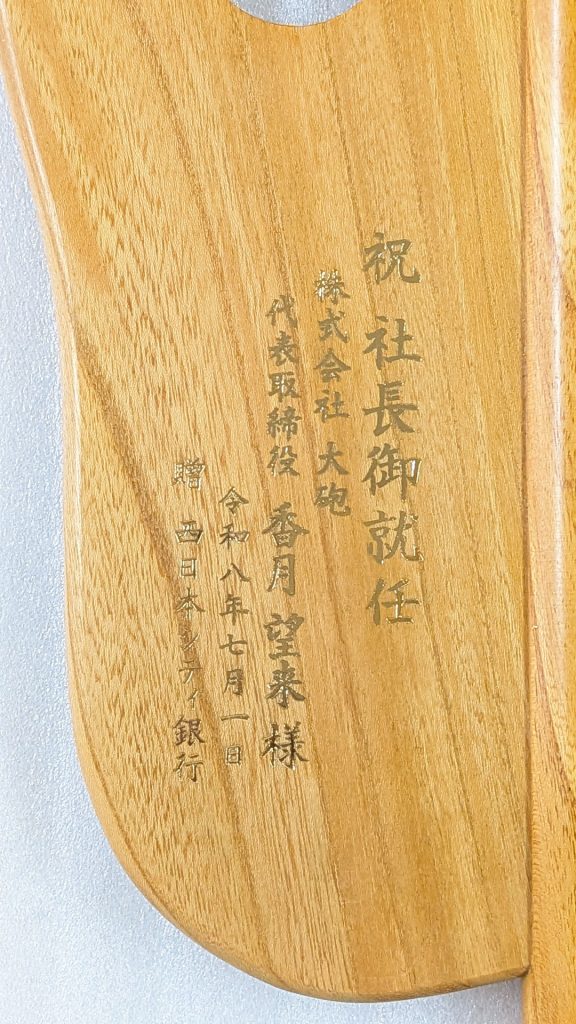 祝 社長御就任
株式会社 大砲
代表取締役 香月 望来 様
令和八年七月一日
贈 西日本シティ銀行